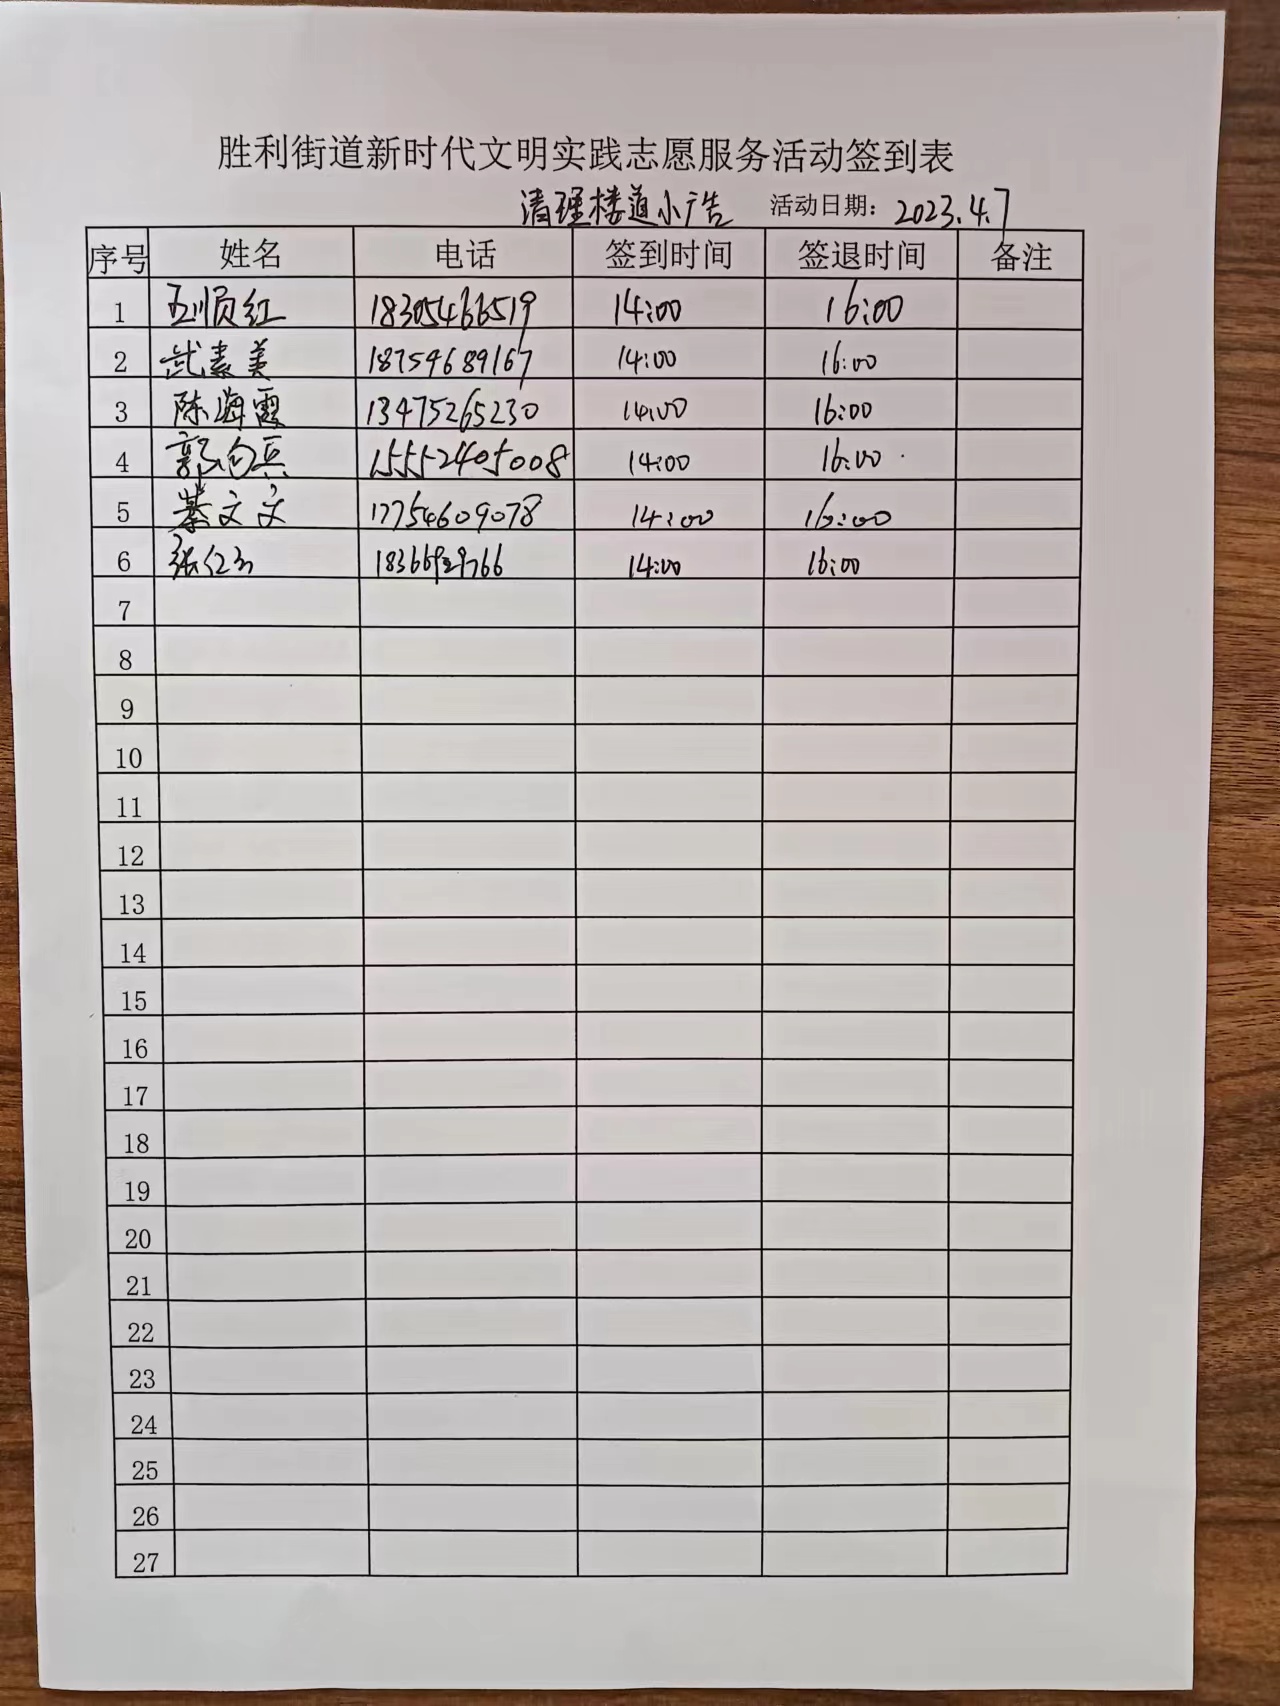 胜利街道新时代文明实践志愿服务活动签到表
清理楼道小广告 活动日期：2023.4.7
序号 姓名 电话 签到时间 签退时间 备注
1 王顺红 18305466519 14:00 16:00
2 武素美 18754689167 14:00 16:00
3 陈海霞 13475265230 14:00 16:00
4 郭向兵 15552405008 14:00 16:00
5 綦文文 17754609078 14:00 16:00
6 14:00 16:00
7
8
9
10
11
12
13
14
15
16
17
18
19
20
21
22
23
24
25
26
27